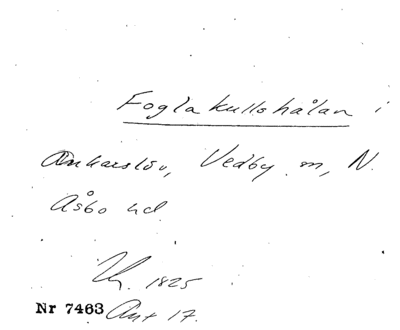 Foglakullshålan i
Ankarslöv, Vedby m, N.
Åsbo hd
1825
Nr 7463 Ant 17.